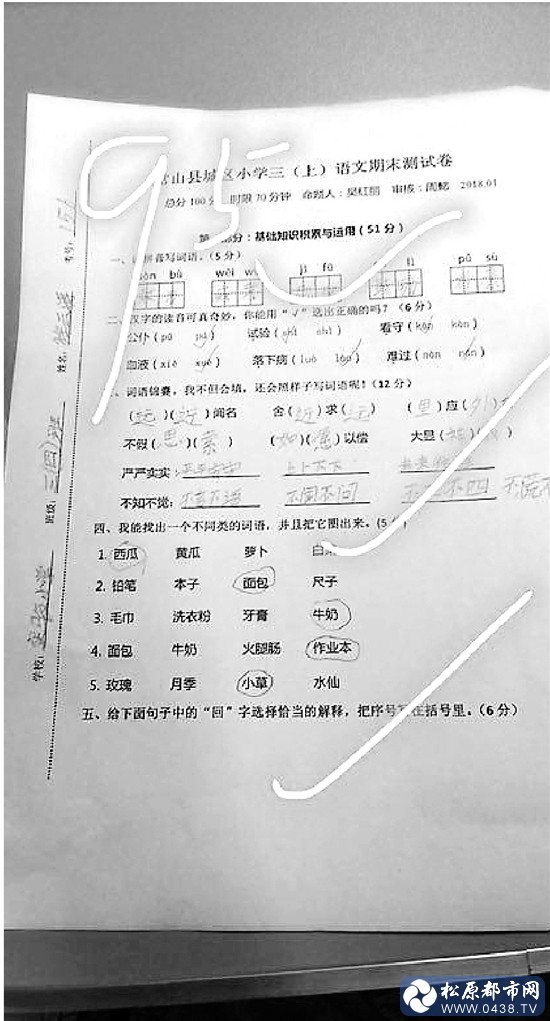 95
常山县城区小学三（上）语文期末测试卷
总分100分 时限70分钟 命题人：吴红丽 审核： 2018.01
第 部分：基础知识积累与运用（51分）
一、 拼音写词语。（5分）
bù wèi jì fù lì pū sù
二、汉字的读音可真奇妙，你能用“√”选出正确的吗？（6分）
公仆（pū pú） 试验（shì shì） 看守（kān kàn）
血液（xiě xuè） 落下病（luò lào） 难过（nàn nán）
、词语锦囊，我不但会填，还会照样子写词语呢！（12分）
（ ）（ ）闻名 舍（近）求（远） （里）应（外）
不假（思）（索） （如）（愿）以偿 大显（ ）（ ）
严严实实： 上上下下
不知不觉： 不闻不问
四、我能找出一个不同类的词语，并且把它圈出来。（5分
1. 西瓜 黄瓜 萝卜 白
2. 铅笔 本子 面包 尺子
3. 毛巾 洗衣粉 牙膏 牛奶
4. 面包 牛奶 火腿肠 作业本
5. 玫瑰 月季 小草 水仙
五、给下面句子中的“回”字选择恰当的解释，把序号 在括号里。（6分）
学校： 小学 班级：三（四）班 姓名： 考号：
松原都市网
WWW.0438.TV